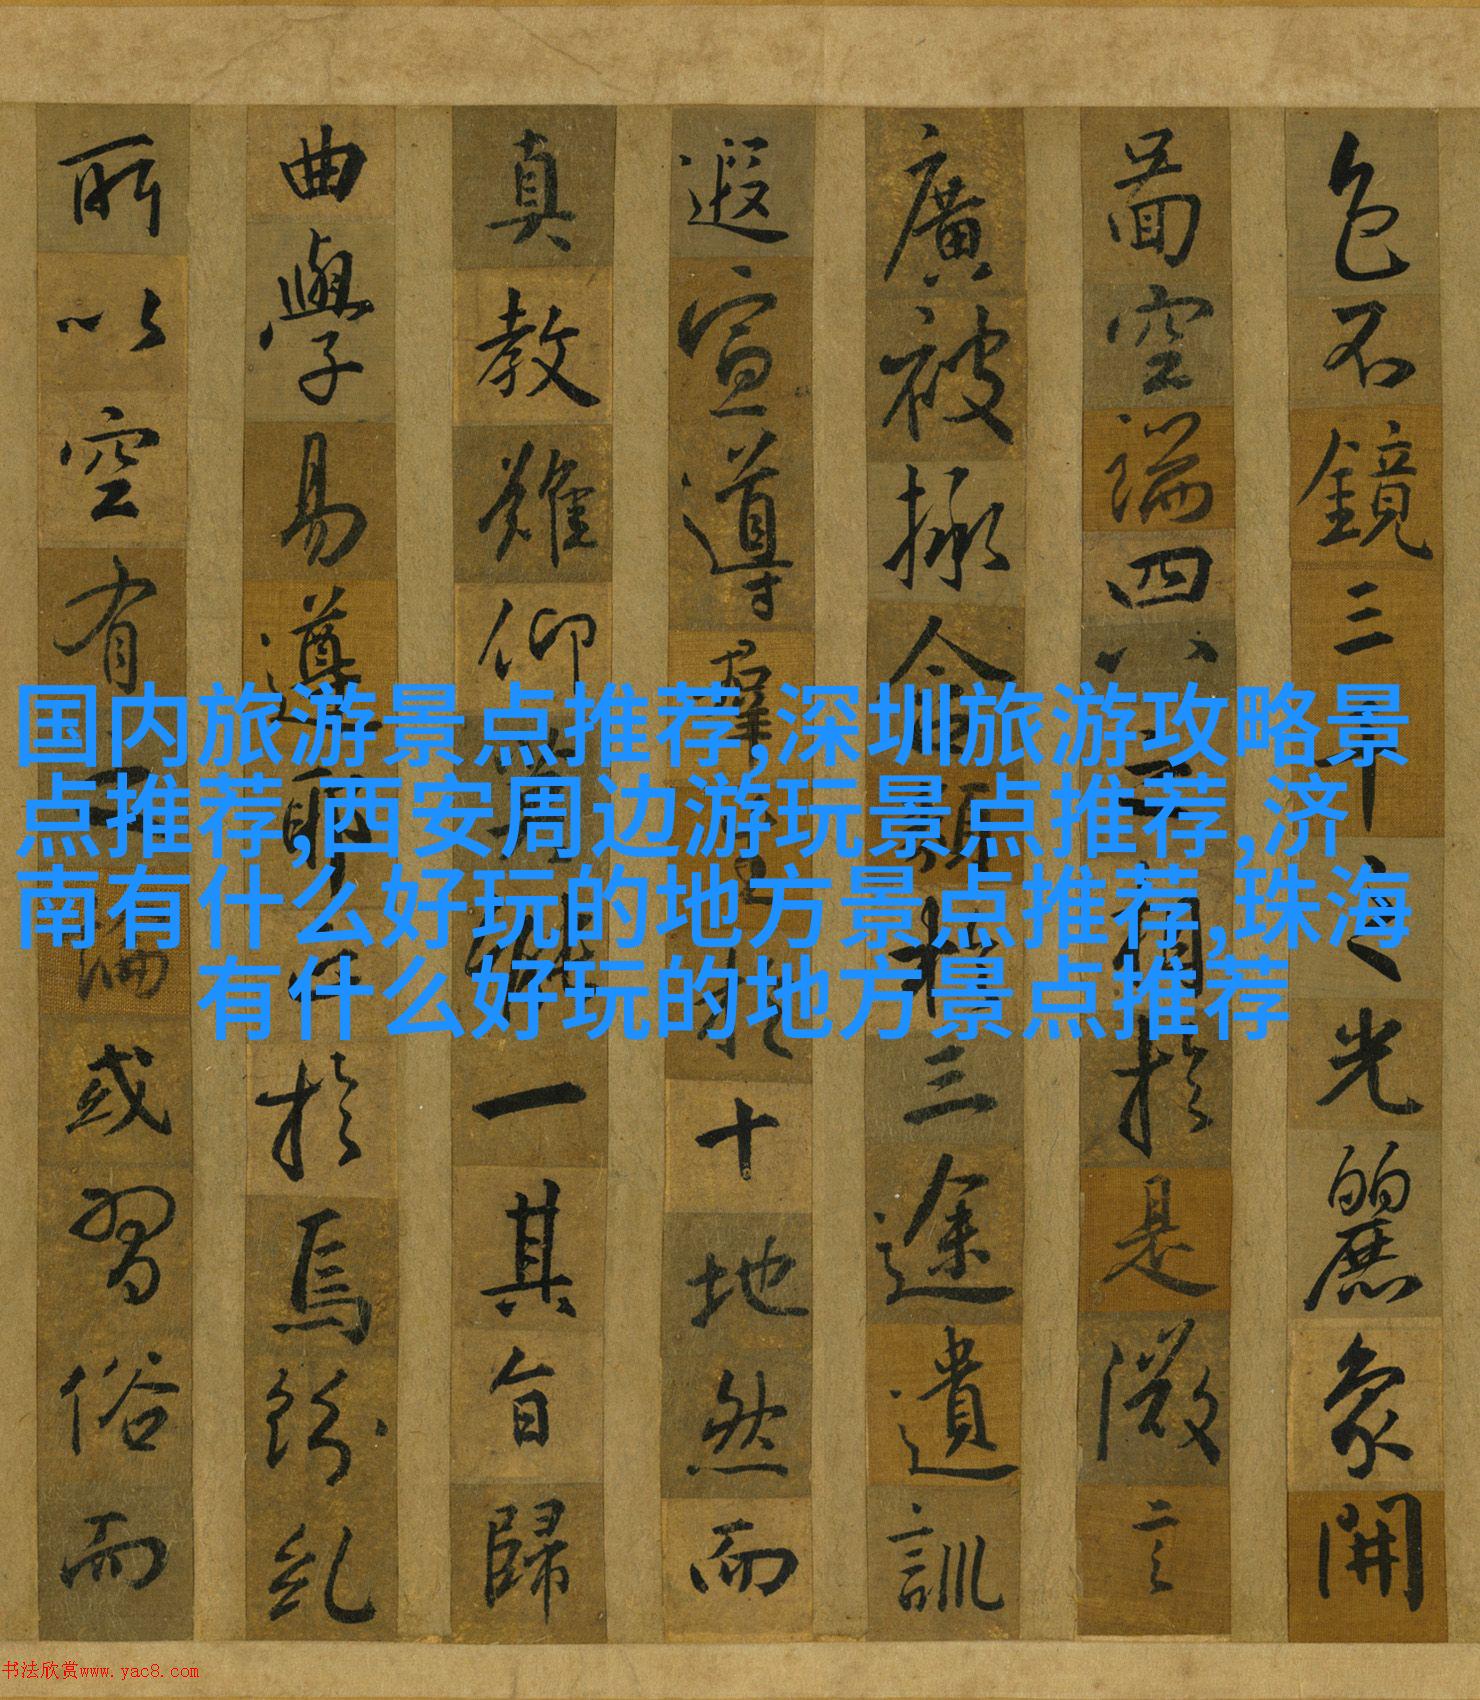 国内旅游景点推荐,深圳旅游攻略景
点推荐,西安周边游玩景点推荐,济
南有什么好玩的地方景点推荐,珠海
有什么好玩的地方景点推荐
色不鏡三千之光麗象開
圖空端四八之相於是微言
廣被拯含類於三途遺訓
遐宣導群生於十地然而
真教難仰莫能一其旨歸
曲學易遵邪正於焉紛糺
所以空有之論或習俗而
书法欣赏www.yac8.com